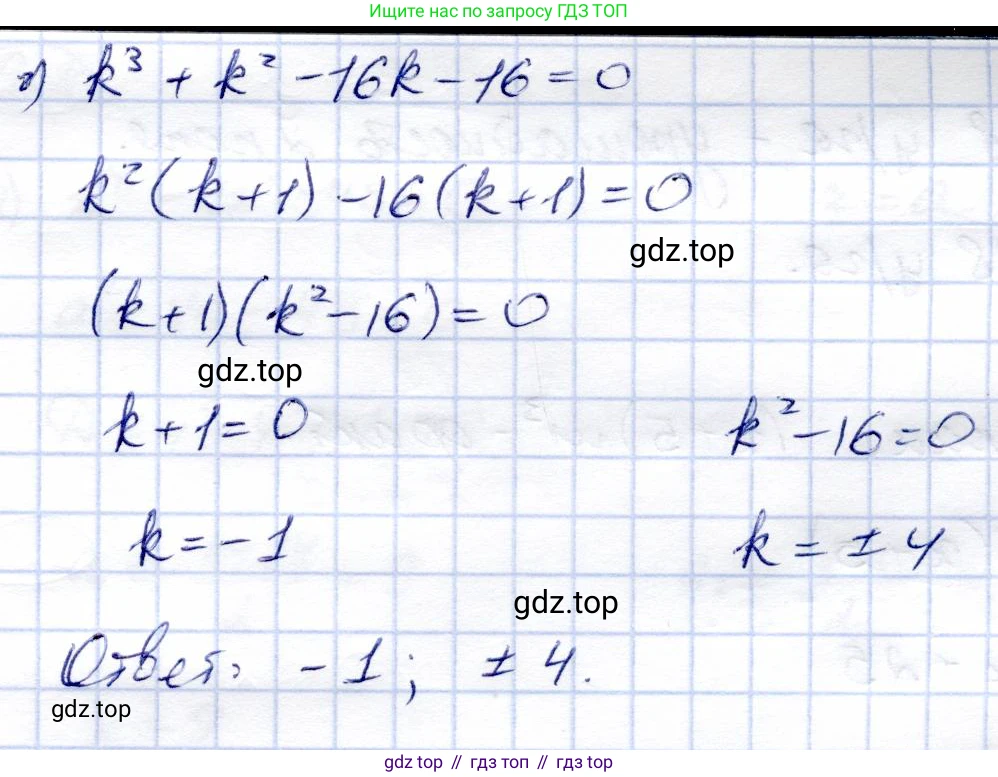 Ищите нас по запросу ГДЗ ТОП
г) k³ + k² - 16k - 16 = 0
k²(k+1) - 16(k+1) = 0
gdz.top
(k+1)(k² - 16) = 0
gdz.top
k+1 = 0 k² - 16 = 0
k = -1 k = ± 4
gdz.top
Ответ: -1; ± 4.
gdz.top
gdz.top // гдз топ // gdz top